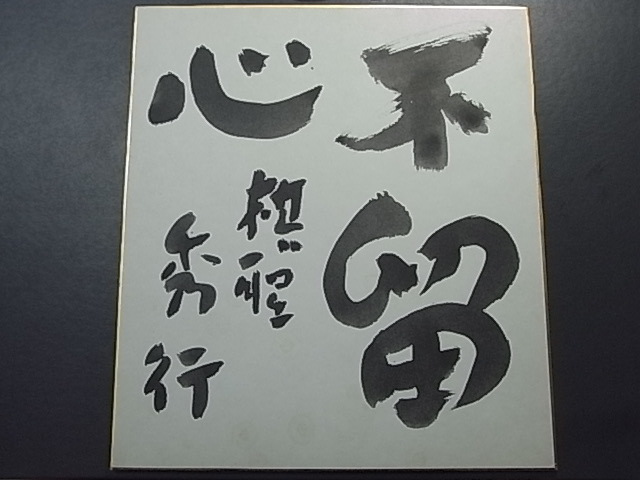 不留
心
棋聖
秀行